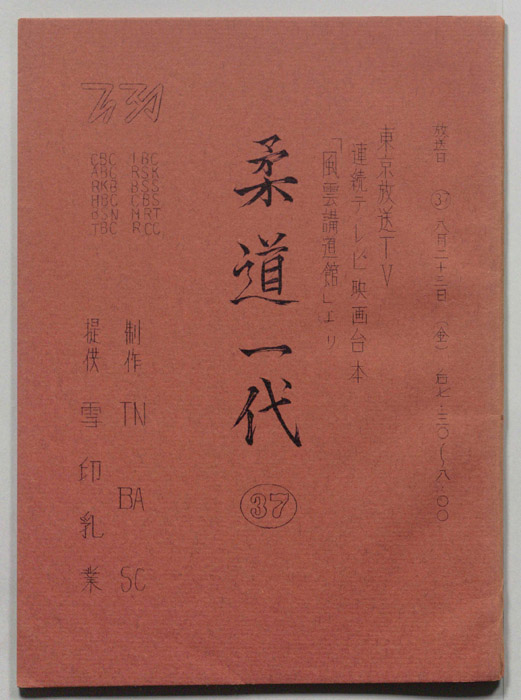 放送日 ㊲ 八月二十三日(金) 自七・三〇〜八・〇〇
東京放送TV
連続テレビ映画台本
「風雲講道館」より
柔道一代
㊲
IBC
RSK
BSS
CBS
NRT
RCC
CBC
ABC
RKB
HBC
BSN
TBC
制作 TN BA SC
提供 雪印乳業